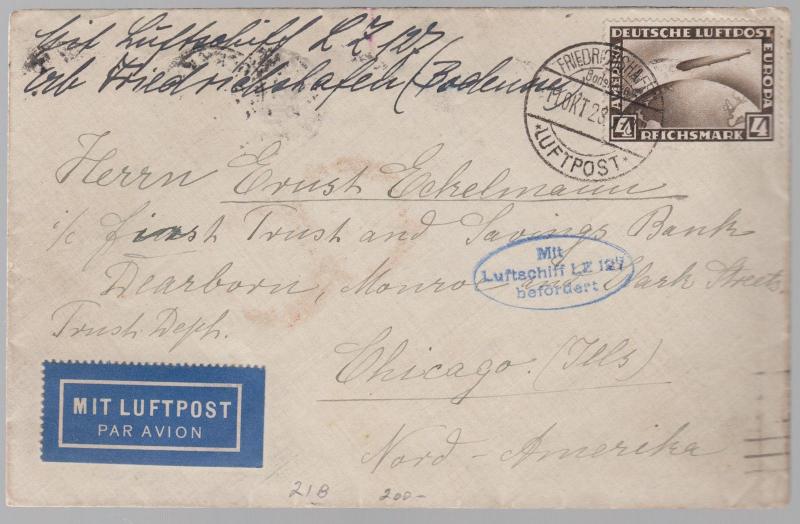 Mit Luftschiff L Z 127
ab Friedrichshafen (Bodensee)
DEUTSCHE LUFTPOST
EUROPA
AMERIKA
4 REICHSMARK 4
FRIEDRICHSHAFEN
(Bodensee)
OKT 28
*LUFTPOST*
Herrn Ernst Eckelmann
c/o First Trust and Savings Bank
Dearborn, Monroe and Clark Streets
Trust Deph.
Mit
Luftschiff LZ 127
befördert
Chicago (Ills)
Nord-Amerika
MIT LUFTPOST
PAR AVION
21B 200-